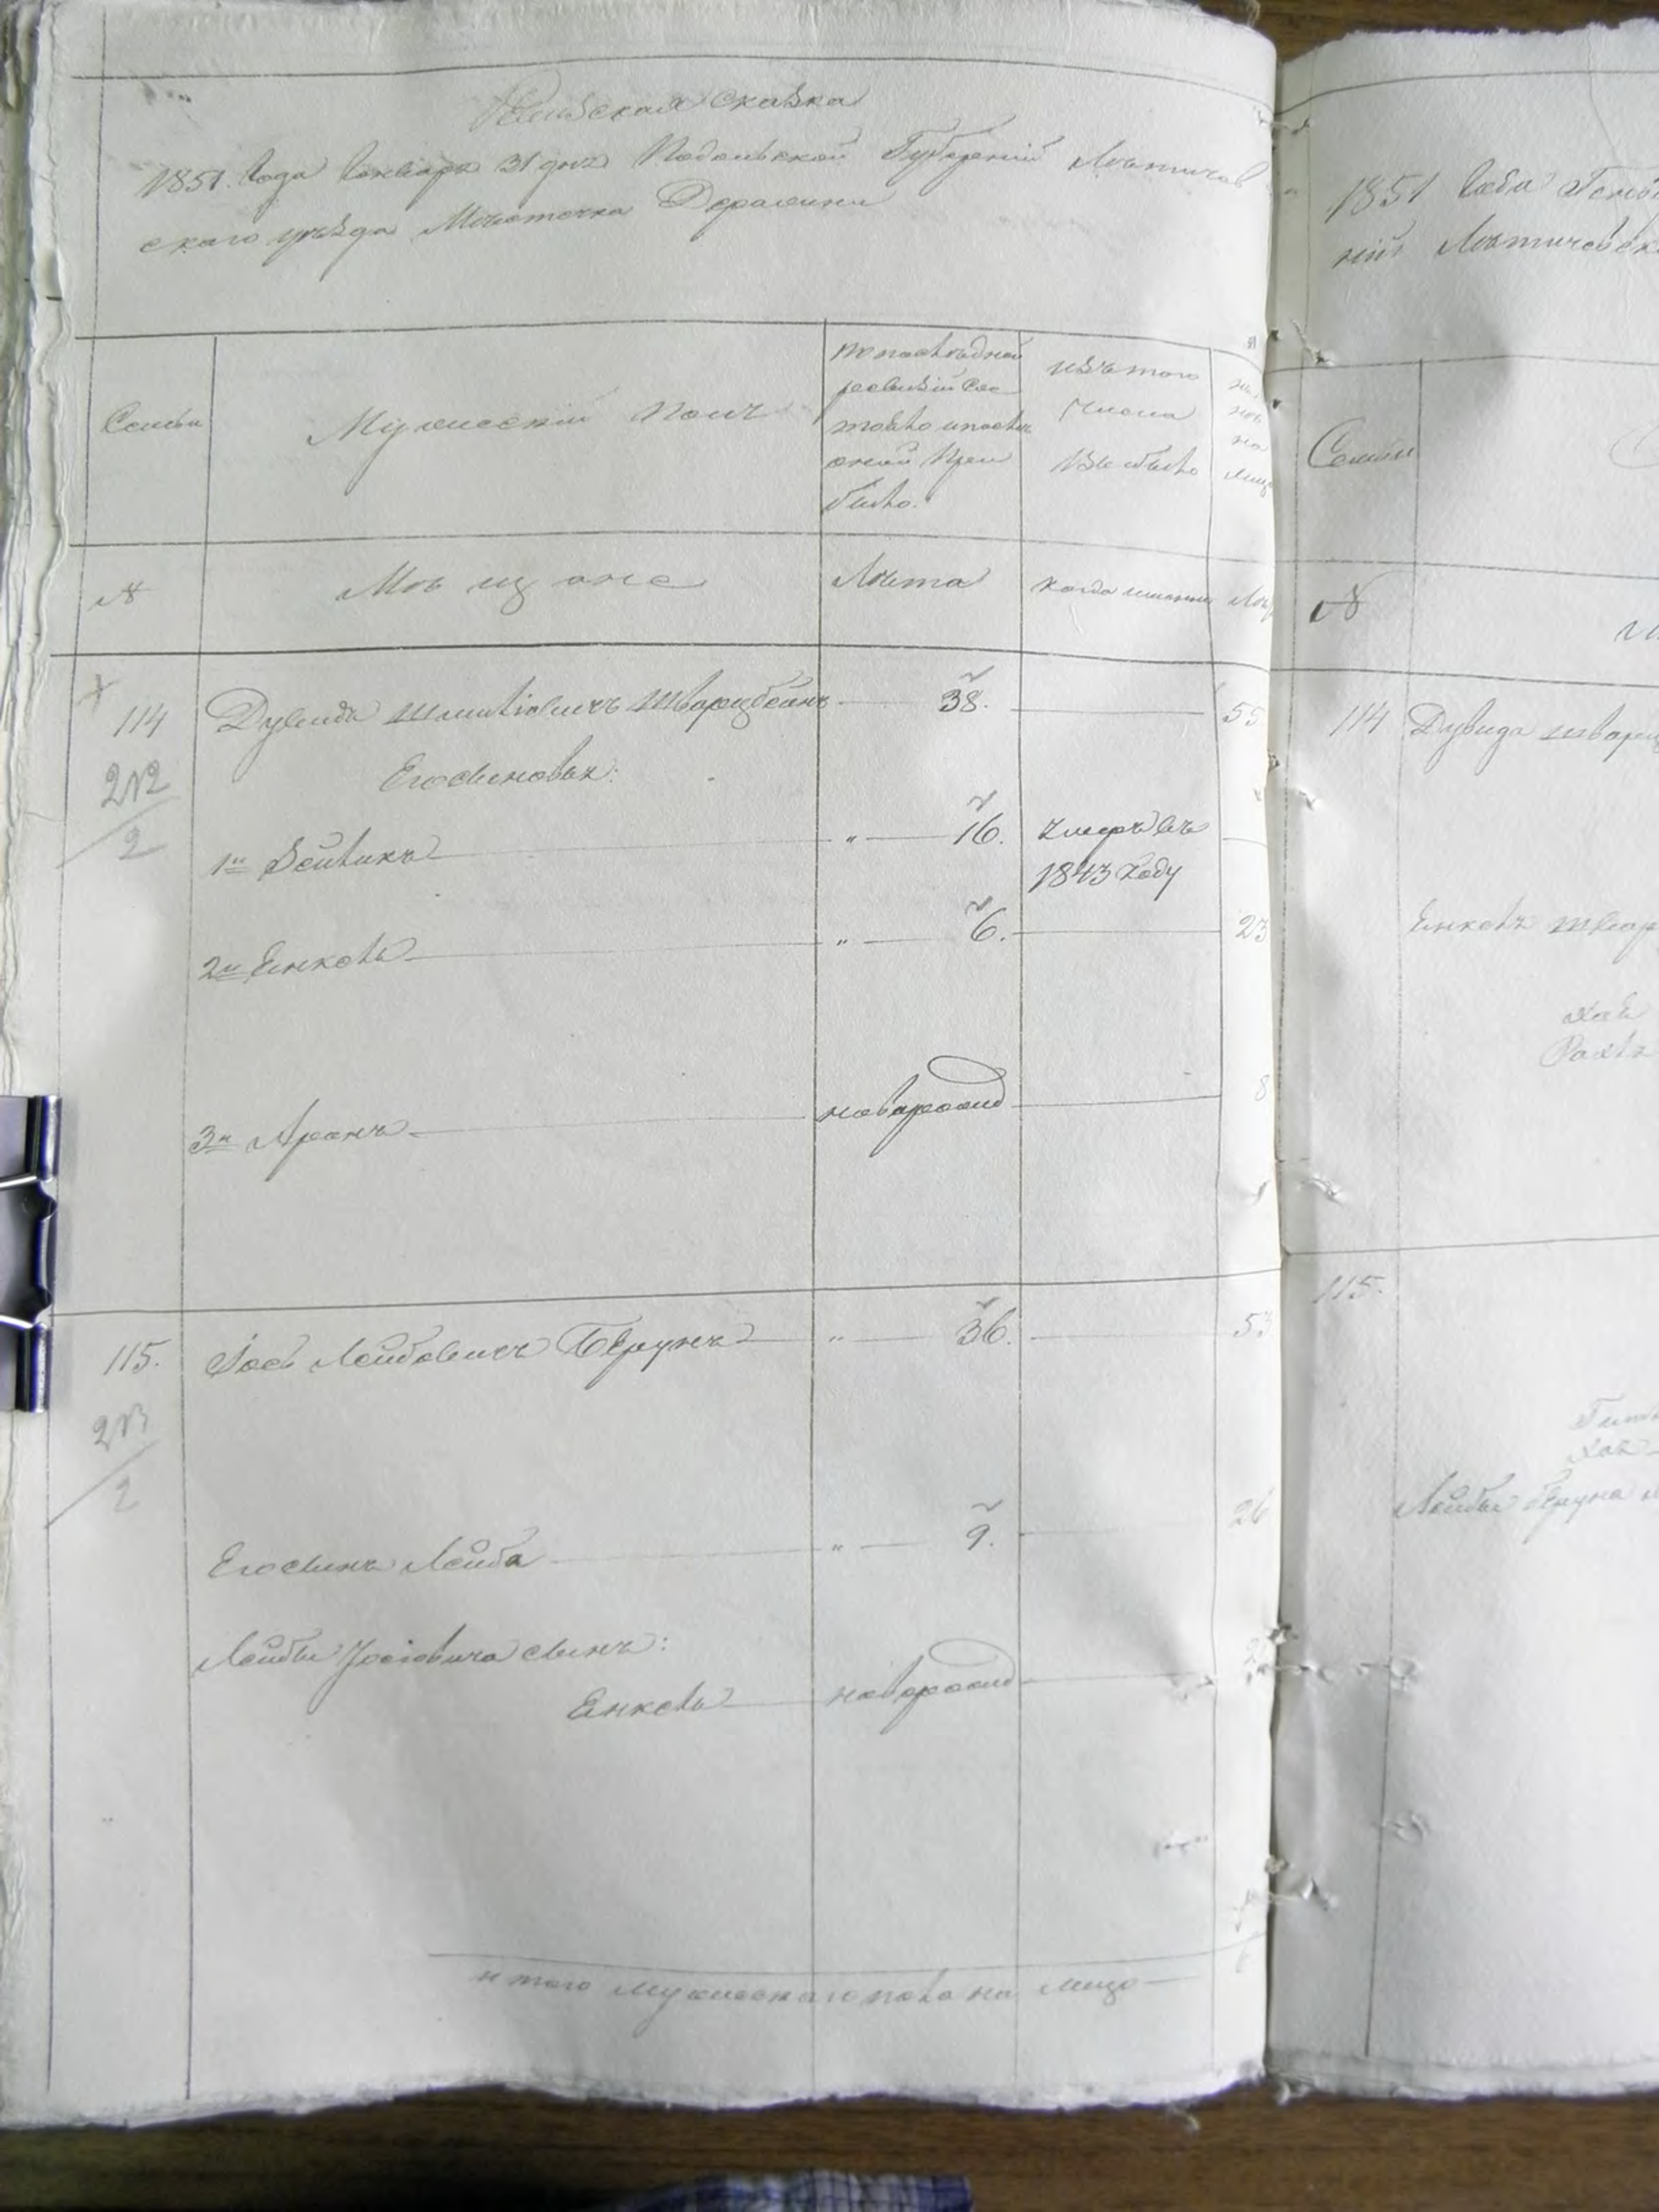 Ревизская Сказка
1851. Года Генваря 31 дня Подольской Губернии Летичев
ского уезда Местечка Деражни
Семьи
Мужеский Полъ
По последней
ревизии сос
тояло и после
оной При
было.
изъ того
числа
Выбыло
№
Мещане
Лета
когда именно
114
Дувидъ Шмулiовичъ Шварцбейнъ
38.
55
212
2
Его сыновья:
1й Зейликъ
" 16.
умеръ въ
1843 году
2й Енкель
" 6.
23
3й Аронъ
новорожд
8
115.
Iось Лейбовичъ Бернунъ
" 36.
53
213
2
Его сынъ Лейба
" 9.
26
Лейбы Iосiовича сынъ:
Енкель
новорожд
2
и того мужескаго пола на лицо
1851 Года Генв
нiи Летичевск
Семьи
№
114
Дувида шварц
Енкеля швар
115.
Лейбы